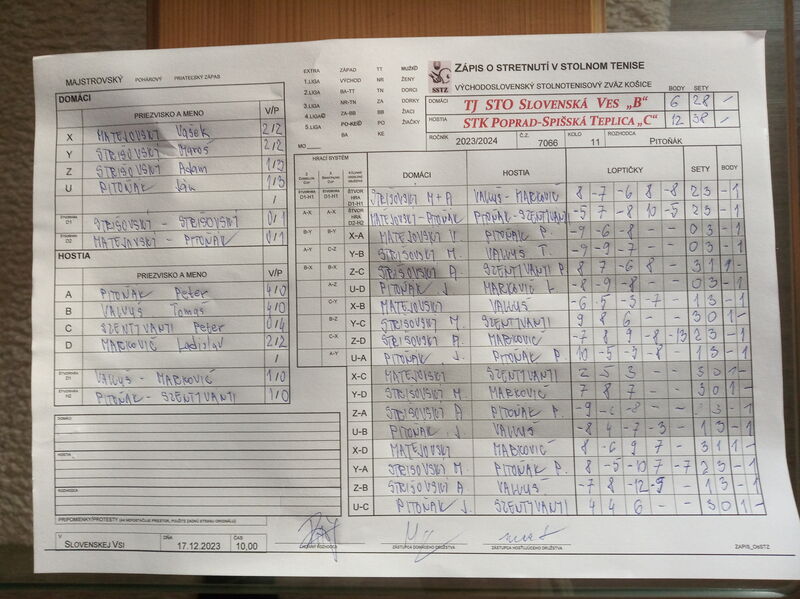 MAJSTROVSKÝ POHÁROVÝ PRIATEĽSKÝ ZÁPAS
DOMÁCI
PRIEZVISKO A MENO V/P
X MATEJOVSKÝ Vašek 2/2
Y ŠTRISOVSKÝ Maroš 2/2
Z ŠTRISOVSKÝ Adam 1/3
U PITOŇÁK Ján 1/3
/
ŠTVORHRA D1 ŠTRISOVSKÝ - ŠTRISOVSKÝ 0/1
ŠTVORHRA D2 MATEJOVSKÝ - PITOŇÁK 0/1
HOSTIA
PRIEZVISKO A MENO V/P
A PITOŇÁK Peter 4/0
B VALLUŠ Tomáš 4/0
C SZENTIVANTI Peter 0/4
D MARKOVIČ Ladislav 2/2
/
ŠTVORHRA H1 VALLUŠ - MARKOVIČ 1/0
ŠTVORHRA H2 PITOŇÁK - SZENTIVANTI 1/0
DOMÁCI
HOSTIA
ROZHODCA
PRIPOMIENKY/PROTESTY (AK NEPOSTAČUJE PRIESTOR, POUŽITE ZADNÚ STRANU ORIGINÁLU)
V SLOVENSKEJ VSI DŇA 17.12.2023 ČAS 10,00
EXTRA ZÁPAD TT MUŽI
1.LIGA VÝCHOD NR ŽENY
2.LIGA BA-TT TN DORCI
3.LIGA NR-TN ZA DORKY
4.LIGA ZA-BB BB ŽIACI
5.LIGA PO-KE PO ŽIAČKY
BA KE
MO
SSTZ
ZÁPIS O STRETNUTÍ V STOLNOM TENISE
VÝCHODOSLOVENSKÝ STOLNOTENISOVÝ ZVÄZ KOŠICE BODY SETY
DOMÁCI TJ STO SLOVENSKÁ VES „B" 6 28
HOSTIA STK POPRAD-SPIŠSKÁ TEPLICA „C" 12 38
ROČNÍK 2023/2024 Č. 7066 KOLO 11 ROZHODCA PITOŇÁK
HRACÍ SYSTÉM
DOMÁCI HOSTIA LOPTIČKY SETY BODY
ŠTVORHRA D1-H1 ŠTRISOVSKÝ M+A VALLUŠ-MARKOVIČ 8 -7 -6 8 -8 2 3 - 1
ŠTVORHRA D2-H2 MATEJOVSKÝ-PITOŇÁK PITOŇÁK-SZENTIVANTI -5 7 -8 10 -5 2 3 - 1
A-X B-Y X-A MATEJOVSKÝ V. PITOŇÁK P. -9 -6 -8 - 0 3 - 1
B-Y C-Z Y-B ŠTRISOVSKÝ M. VALLUŠ T. -9 -9 -7 - 0 3 - 1
B-X Z-C ŠTRISOVSKÝ A. SZENTIVANTI P. 8 7 -6 8 - 3 1 1 -
A-Z U-D PITOŇÁK J. MARKOVIČ L. -8 -9 -8 - 0 3 - 1
C-Y X-B MATEJOVSKÝ VALLUŠ -6 5 -3 -7 - 1 3 - 1
B-Z Y-C ŠTRISOVSKÝ M. SZENTIVANTI 9 8 6 - 3 0 1 -
C-X Z-D ŠTRISOVSKÝ A MARKOVIČ -7 8 9 -8 -13 2 3 - 1
A-Y U-A PITOŇÁK J. PITOŇÁK P. 10 -5 -3 -8 - 1 3 - 1
X-C MATEJOVSKÝ SZENTIVANTI 2 5 3 - 3 0 1 -
Y-D ŠTRISOVSKÝ M. MARKOVIČ 7 8 7 - 3 0 1 -
Z-A ŠTRISOVSKÝ A PITOŇÁK P. -9 -8 - 3 - 1
U-B PITOŇÁK J. VALLUŠ -8 4 -7 -3 - 1 3 - 1
X-D MATEJOVSKÝ MARKOVIČ 8 -6 9 7 - 3 1 1 -
Y-A ŠTRISOVSKÝ M. PITOŇÁK P. 8 -5 -10 7 -7 2 3 - 1
Z-B ŠTRISOVSKÝ A. VALLUŠ -7 8 -12 -9 - 1 3 - 1
U-C PITOŇÁK J. SZENTIVANTI 4 4 6 - 3 0 1 -
HLAVNÝ ROZHODCA ZÁSTUPCA DOMÁCEHO DRUŽSTVA ZÁSTUPCA HOSŤUJÚCEHO DRUŽSTVA
ZAPIS_OsSTZ